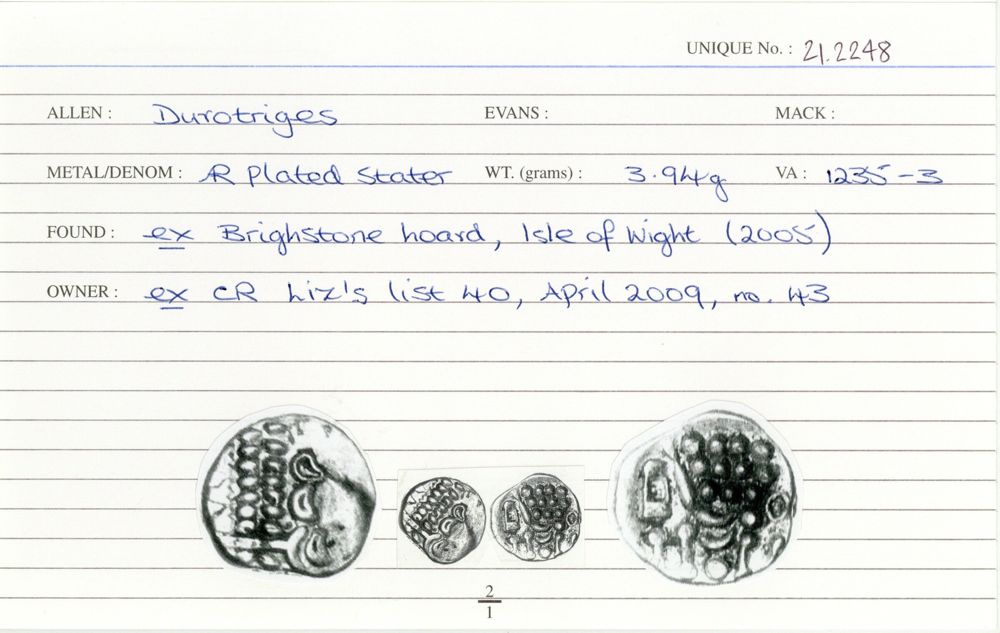 UNIQUE No. : 21.2248
ALLEN : Durotriges EVANS : MACK :
METAL/DENOM : AR Plated Stater WT. (grams) : 3.94g VA : 1235-3
FOUND : ex Brighstone hoard, Isle of Wight (2005)
OWNER : ex CR Liz's list 40, April 2009, no. 43
2
1